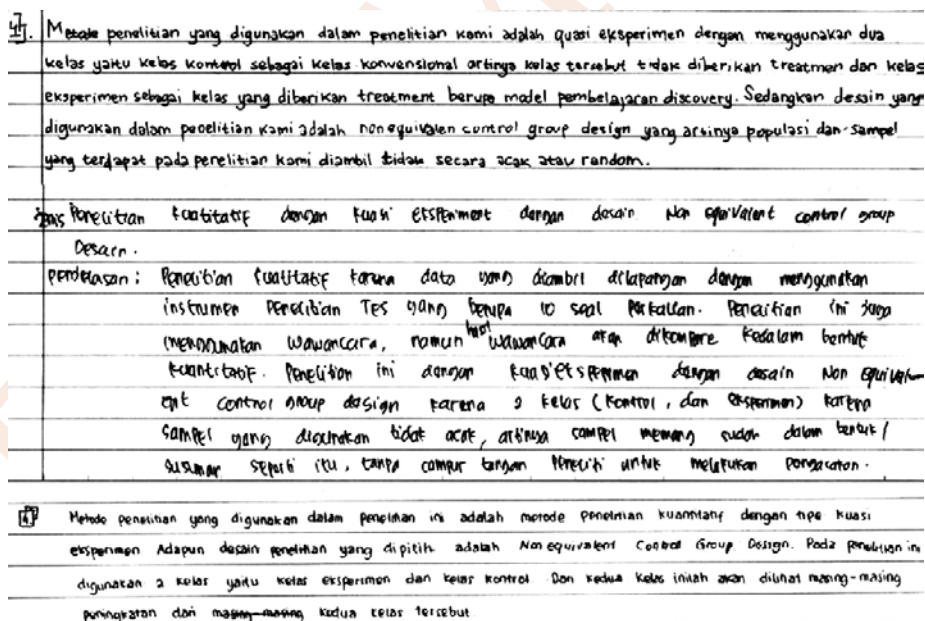 4. Metode penelitian yang digunakan dalam penelitian kami adalah quasi eksperimen dengan menggunakan dua
kelas yaitu kelas kontrol sebagai kelas konvensional artinya kelas tersebut tidak diberikan treatmen dan kelas
eksperimen sebagai kelas yang diberikan treatment berupa model pembelajaran discovery. Sedangkan desain yang
digunakan dalam penelitian kami adalah nonequivalen control group design yang artinya populasi dan sampel
yang terdapat pada penelitian kami diambil tidak secara acak atau random.
Jenis Penelitian kuatitatif dengan kuasi eksperiment dengan desain Non equivalent control group
Desain.
penjelasan : Penelitian kuatitatif karena data yang diambil dilapangan dengan menggunakan
instrumen Penelitian Tes yang berupa 10 soal Perkalian. Penelitian ini juga
menggunakan wawancara, namun hasil wawancara akan dikonvere kedalam bentuk
kuantitatif. Penelitian ini dengan kuasi eksperimen dengan desain Non equival-
ent control group design karena 2 kelas (kontrol, dan eksperimen) karena
sampel yang digunakan tidak acak, artinya sampel memang sudah dalam bentuk /
susunan seperti itu, tanpa campur tangan Peneliti untuk melakukan pengacakan.
4 Metode penelitian yang digunakan dalam penelitian ini adalah metode penelitian kuantitatif dengan tipe kuasi
eksperimen Adapun desain penelitian yang dipilih adalah Non equivalent Control Group Design. Pada penelitian ini
digunakan 2 kelas yaitu kelas eksperimen dan kelas kontrol. Dan kedua kelas inilah akan dilihat masing-masing
peningkatan dari masing-masing kedua kelas tersebut